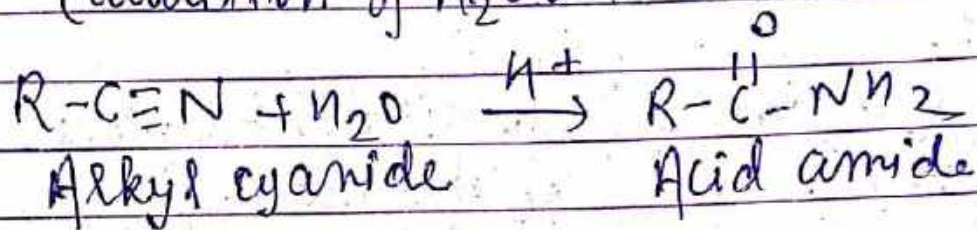 of H2O
O
R-C≡N + H2O H+ → R-C-NH2
Alkyl cyanide Acid amide